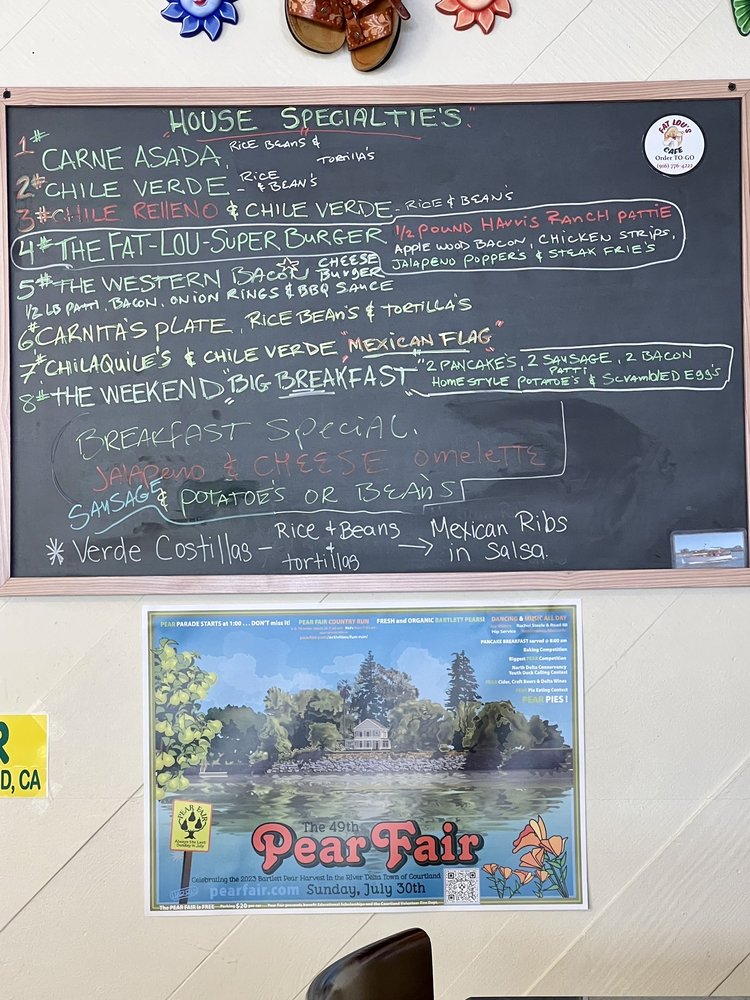 "HOUSE SPECIALTIE'S"
1# CARNE ASADA, RICE BEANS & TORTILLA'S
2# CHILE VERDE - RICE & BEAN'S
3# CHILE RELLENO & CHILE VERDE - RICE & BEAN'S
4# THE FAT-LOU-SUPER BURGER 1/2 POUND HARRIS RANCH PATTIE
APPLE WOOD BACON, CHICKEN STRIPS,
JALAPENO POPPER'S & STEAK FRIE'S
5# THE WESTERN BACON CHEESE BURGER
1/2 LB PATTI, BACON, ONION RINGS & BBQ SAUCE
6# CARNITA'S PLATE, RICE BEAN'S & TORTILLA'S
7# CHILAQUILE'S & CHILE VERDE "MEXICAN FLAG"
8# THE WEEKEND "BIG BREAKFAST" "2 PANCAKE'S, 2 SAUSAGE PATTI, 2 BACON
HOMESTYLE POTATOE'S & SCRAMBLED EGG'S
BREAKFAST SPECIAL.
JALAPENO & CHEESE OMELETTE
SAUSAGE & POTATOE'S OR BEAN'S
* Verde Costillas - Rice & Beans & tortillas → Mexican Ribs in Salsa.
FAT LOU'S
CAFE
Order TO-GO
(916) 776-4222
R
D, CA
PEAR PARADE STARTS at 1:00 . . . DON'T miss it!
PEAR FAIR COUNTRY RUN
FRESH and ORGANIC BARTLETT PEARS!
DANCING & MUSIC ALL DAY
Hip Service
PANCAKE BREAKFAST served @ 8:00 am
Baking Competition
Biggest PEAR Competition
North Delta Conservancy
Youth Duck Calling Contest
PEAR Cider, Craft Beers & Delta Wines
PEAR Pie Eating Contest
PEAR PIES !
PEAR FAIR
Always the Last
Sunday in July
The 49th
Pear Fair
Celebrating the 2023 Bartlett Pear Harvest In the River Delta Town of Courtland
pearfair.com Sunday, July 30th
The PEAR FAIR is FREE